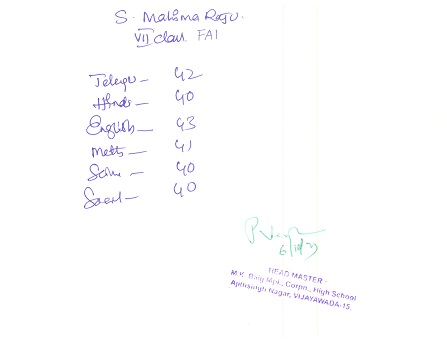 S. Mahima Raju.
VII class FA1
Telegu - 42
Hindi - 40
English - 43
Maths - 41
Scien - 40
Socil - 40
6/10/23
HEAD MASTER
M.K. Baig Mpl., Corpn., High School
Ajithsingh Nagar, VIJAYAWADA-15.